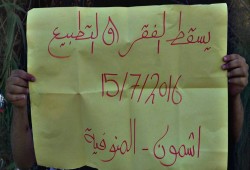 يسقط الفقر و التطبيع
15/7/2016
اشمون - المنوفية